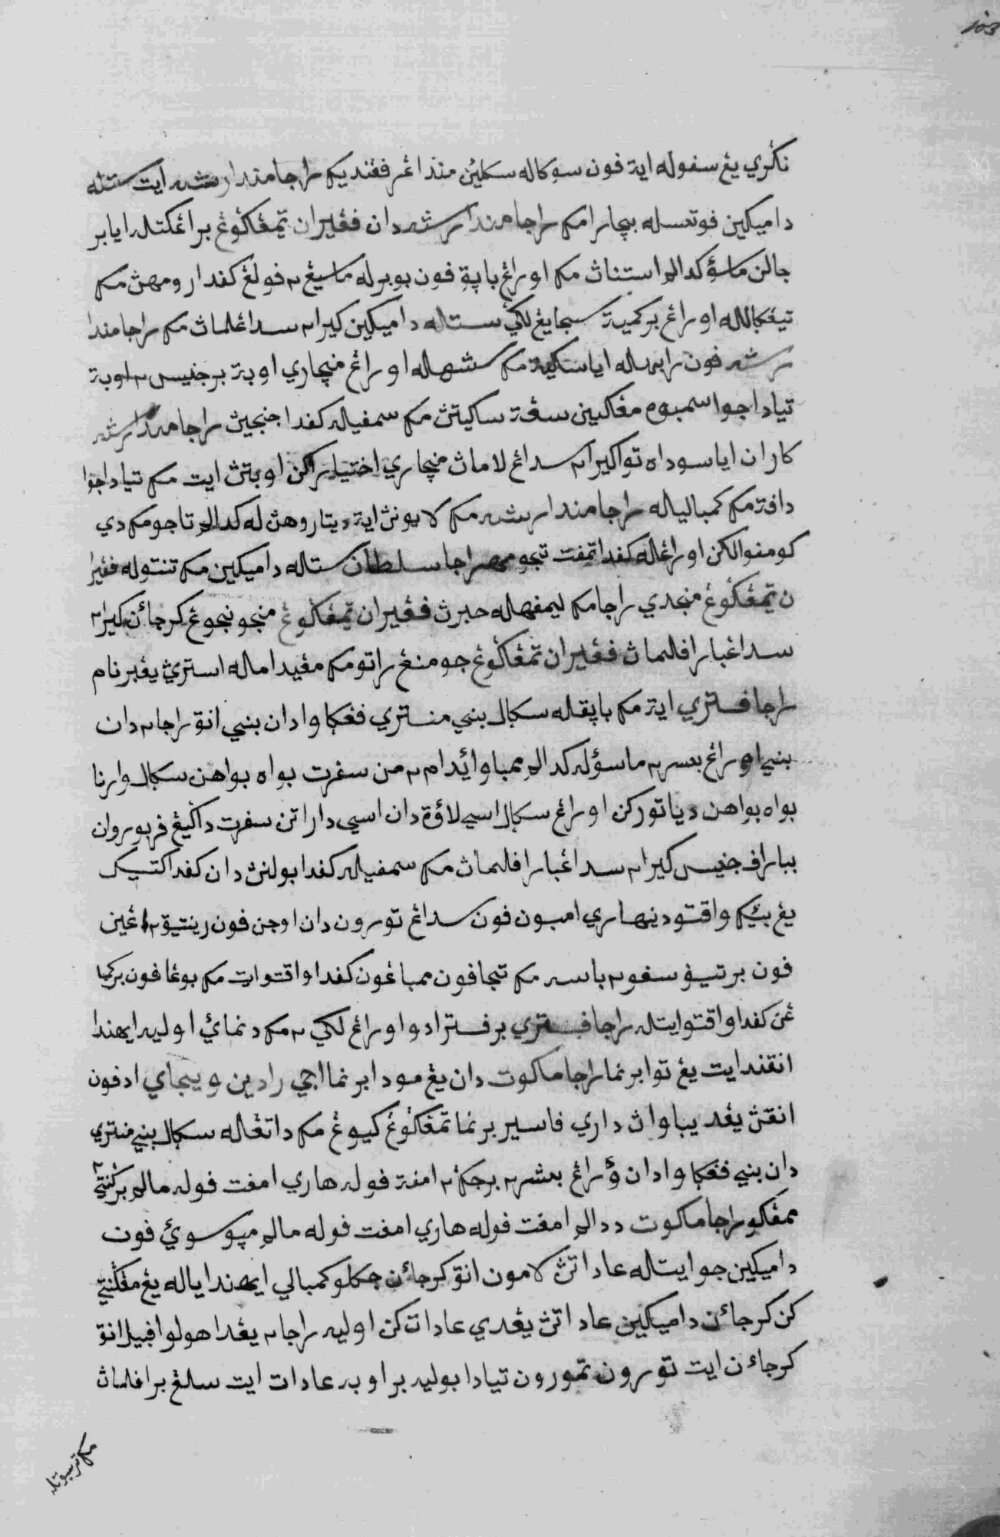 نݢري يڠ سفوله ايت فون سوكاله سكلين مندڠر فقنديكم راجا مندارشه ايت ستله
دميكين فوتسله بچارا مك راجا مندارشه دان فقيران تمڠݢوڠ براڠكتله اي ابر
جالن ماسؤ كدالم استنان مك اورڠ باپق فون بوبرله ماسيڠ٢ فولڠ كفد رومهن مك
تيڠݢاله اورڠ بركميت سجا يڠ لݢي ستله دميكين كيرا٢ سداڠ لمان مك راجا مندا
رشه فون رابهله اي ساكيت مك شهله اورڠ منچاري اوبت برجنيس٢ اوبت
تيادا جوا سمبوه مڠكين سڠت ساكيتن مك سمفيله كفد جنجين راجا مندارشه
كارن اي سوداه توا كيرا٢ سداڠ لامان منچاري اختيار اكن اوبتن ايت مك تيادا جوا
دافت مك كمباليله راجا مندارشه مك لابونن ايت ديتاروهن له كدالم تاجو مك دي
كومفولكن اورڠله كفد تمفت تجو مهراجا سلطان ستله دميكين مك تنتوله فقيرا
ن تمڠݢوڠ منجدي راجا مك ليمفهله حبرن فقيران تمڠݢوڠ منجونجوڠ كرجائن كيرا٢
سداڠ بارا فلمان فقيران تمڠݢوڠ جومنڠ راتو مك مڠيداماله استرين يڠ برنام
راجا فتري ايت مك باپقله سكال بيني منتري فڠݢاوا دان بيني انق راجا٢ دان
بيني اورڠ بسر٢ ماسؤله كدالم ممباوا ئيدام٢من سفرت بواه بواهن سكال وارنا
بواه بواهن دياتوركن اورڠ سكال اسي لاؤت دان اسي دارتن سفرت داڬيڠ فربوروان
ببراف جنيس كيرا٢ سداڠ بارا فلمان مك سمفيله كفد بولنن دان كفد كتيك
يڠ بيك واقتو دينهاري امبون فون سداڠ تورون دان اوجن فون رينتيق٢ اڠين
فون برتيوف سفوي٢ باسه مك تيجا فون ممباڠون كفد واقتو ايت مك بوڠا فون بركمبا
ڠن كفد واقتو ايتله راجا فتري برفترا دوا اورڠ لكي٢ مك دنمائي اوليه ايهندا
انقند ايت يڠ توا برنما راجا ماكوت دان يڠ مودا برنما اجي رادين ويجاي ادفون
انقن يڠ ديباوان داري فاسير برنما تمڠݢوڠ كيوڠ مك داتڠله سكال بيني منتري
دان بيني فڠݢاوا دان اورڠ بسر٢ برجݢ٢ امفت فوله هاري امفت فوله مالم برݢنتي٢
ممڠكو راجا ماكوت ددالم امفت فوله هاري امفت فوله مالم مپوسوئي فون
دميكين جوا ايتله عادتن كلامون انق كرجائن جكلو كمبالي ايهندا ياله يڠ مڠݢنتي
كن كرجائن دميكين عادتن يڠ دي عادتكن اوليه راجا٢ يڠ داهولو افبيل انق
كرجائن ايت تورون تمورون تيادا بوليه براوبه عادات ايت سلڠ برافلمان
مك ترسبوتله